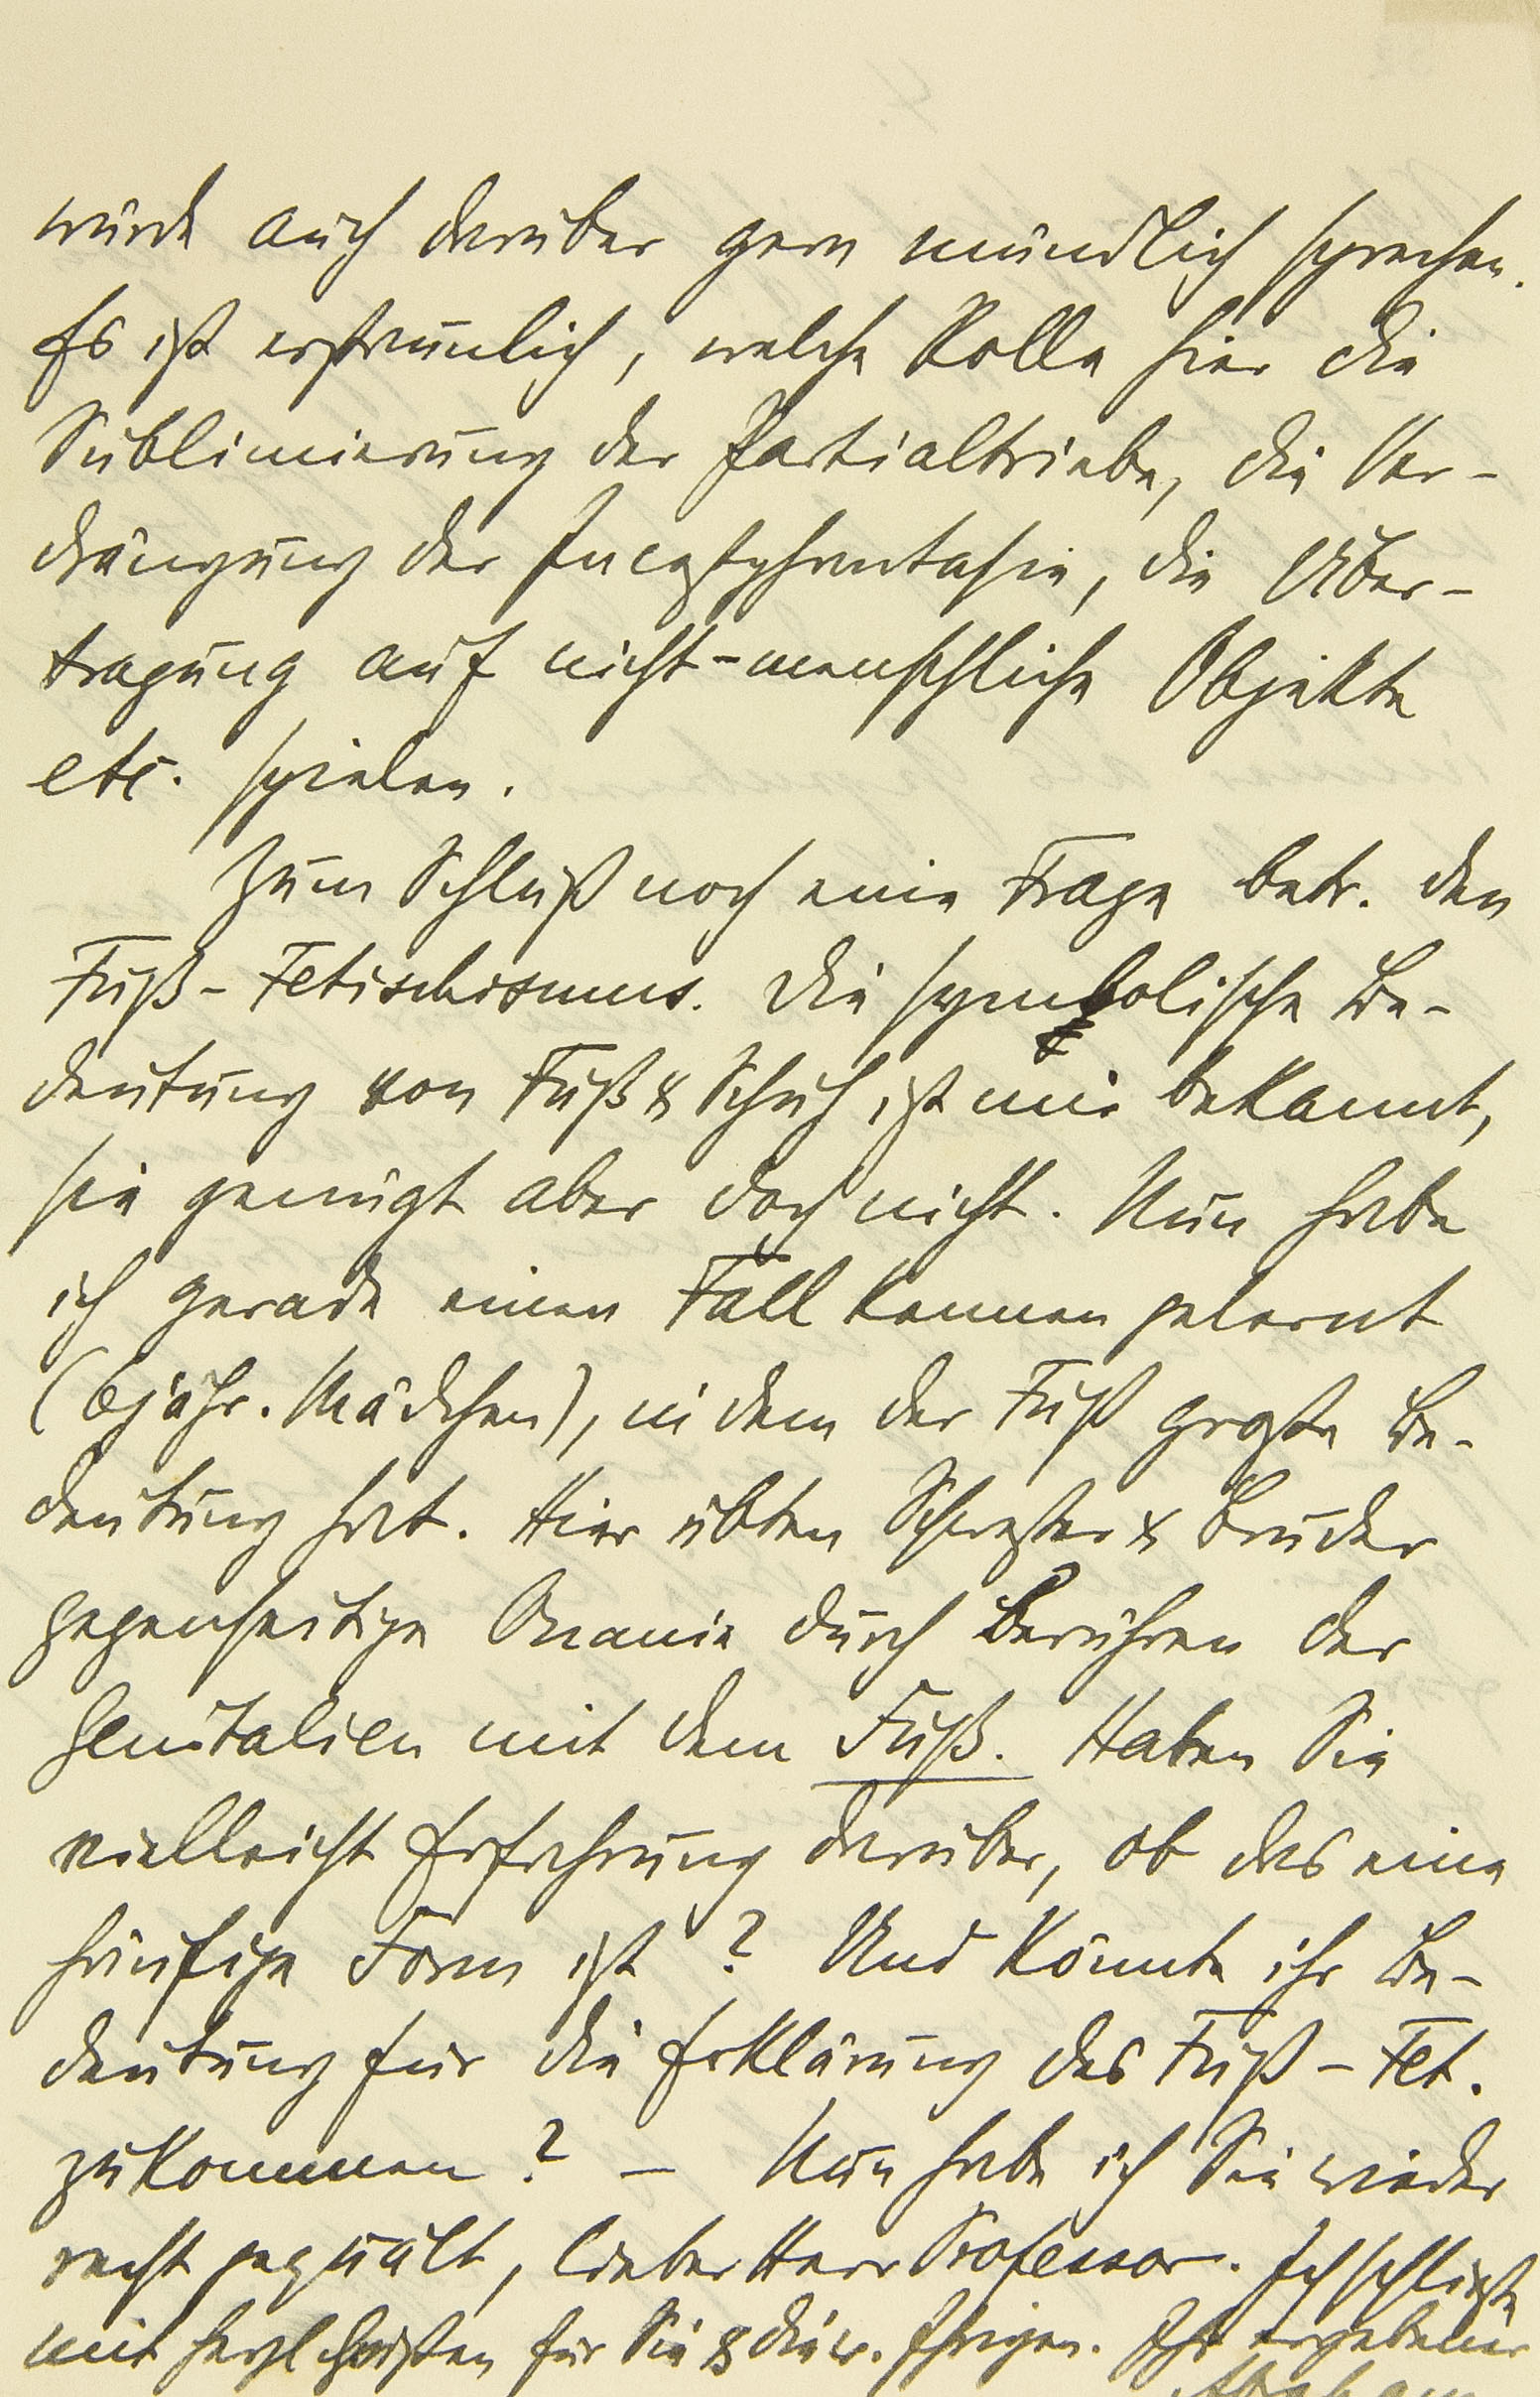 würde auch darüber gern mündlich sprechen.
Es ist erstaunlich, welche Rolle hier die
Sublimierung der Partialtriebe, die Ver-
drängung der Incestphantasie, die Über-
tragung auf nicht-menschliche Objekte
etc. spielen.
Zum Schluß noch eine Frage betr. den
Fuß-Fetischismus. Die symbolische Be-
deutung von Fuß & Schuh ist mir bekannt,
sie genügt aber doch nicht. Nun habe
ich gerade einen Fall kennen gelernt
(6jähr. Mädchen), in dem der Fuß große Be-
deutung hat. Hier übten Schwester & Bruder
gegenseitige Onanie durch Berühren der
Genitalien mit dem Fuß. Haben Sie
vielleicht Erfahrung darüber, ob das eine
häufige Form ist? Und könnte ihr Be-
deutung für die Erklärung des Fuß-Fet.
zukommen? – Nun habe ich Sie wieder
recht gequält, lieber Herr Professor. Ich schließe
mit herzl Grüßen für Sie & die w. Ihrigen. Ihr ergebener
Abraham